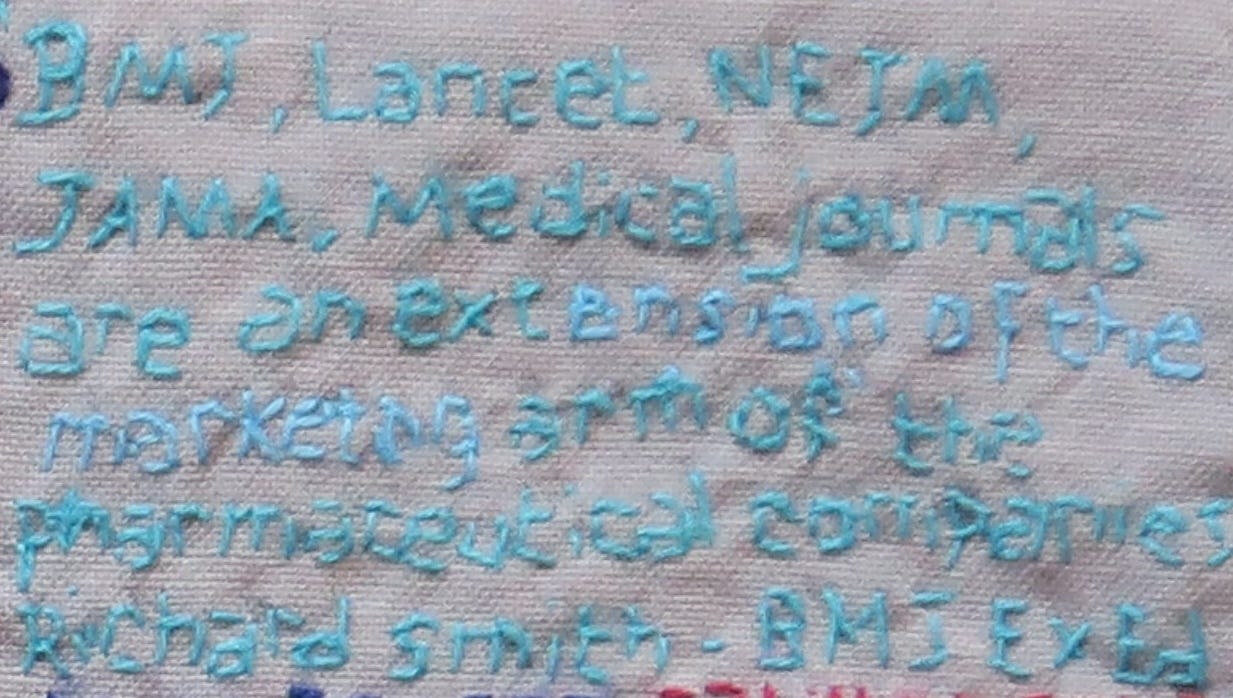 BMJ, Lancet, NEJM,
JAMA, Medical journals
are an extension of the
marketing arm of the
pharmaceutical companies
Richard Smith - BMJ Ex Ed